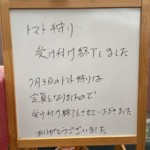 トマト狩り
受け付け終了しました
7月3日のトマト狩りは
定員になりましたので
受け付け終了とさせていただきます
ありがとうございました